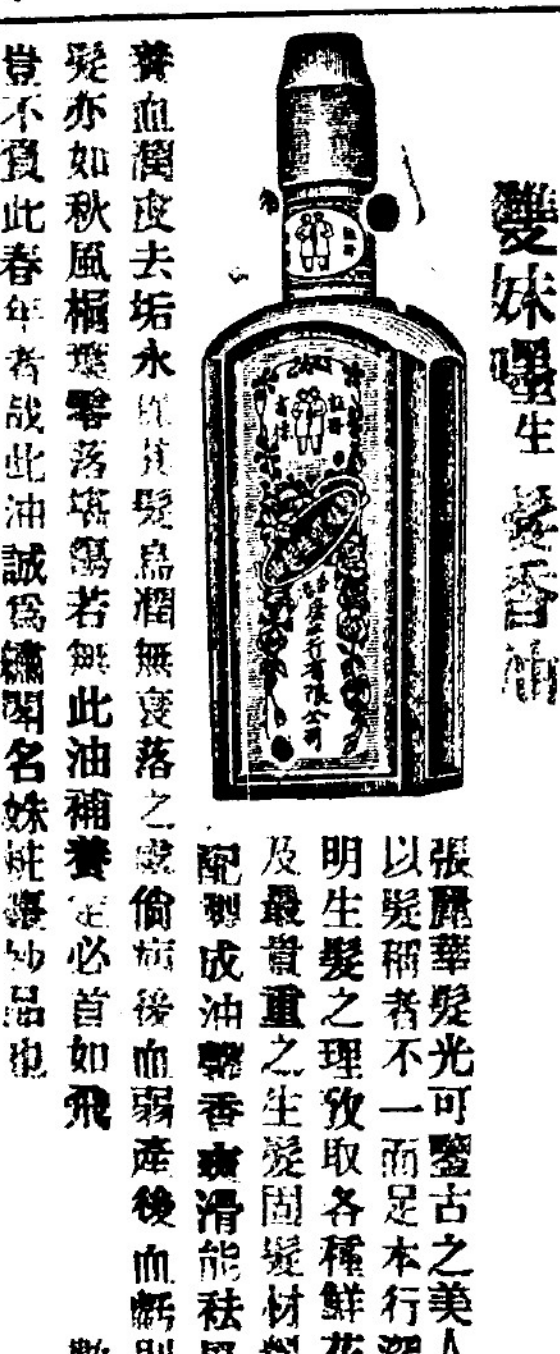 雙妹嚜生髮香油
張麗華髮光可鑒古之美人
以髮稱者不一而足本行深
明生髮之理攷取各種鮮花
及最貴重之生髮固髮材料
配製成油馨香爽滑能祛風
養血潤 去垢永 髮烏潤無衰落之 倘病後血弱產後血虧則
髮亦如秋風桐葉零落 若無此油補養 必首如飛
豈不負此春年者哉此油誠爲繡閣名姝粧臺妙品也
廣生行有限公司